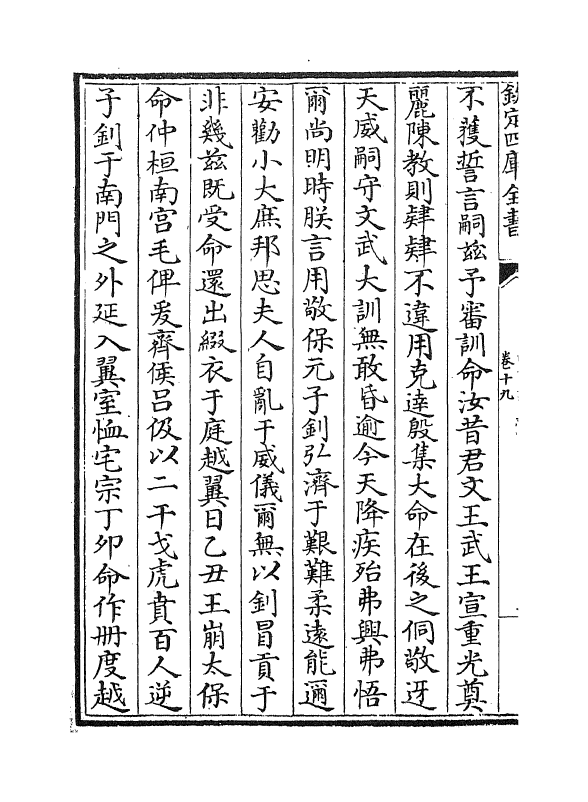 欽定四庫全書
卷十九
不獲誓言嗣兹予審訓命汝昔君文王武王宣重光奠
麗陳教則肄肄不違用克達殷集大命在後之侗敬迓
天威嗣守文武大訓無敢昏逾今天降疾殆弗興弗悟
爾尚明時朕言用敬保元子釗弘濟于艱難柔遠能邇
安勸小大庶邦思夫人自亂于威儀爾無以釗冒貢于
非幾兹既受命還出綴衣于庭越翼日乙丑王崩太保
命仲桓南宫毛俾爰齊侯吕伋以二干戈虎賁百人逆
子釗于南門之外延入翼室恤宅宗丁夘命作册度越